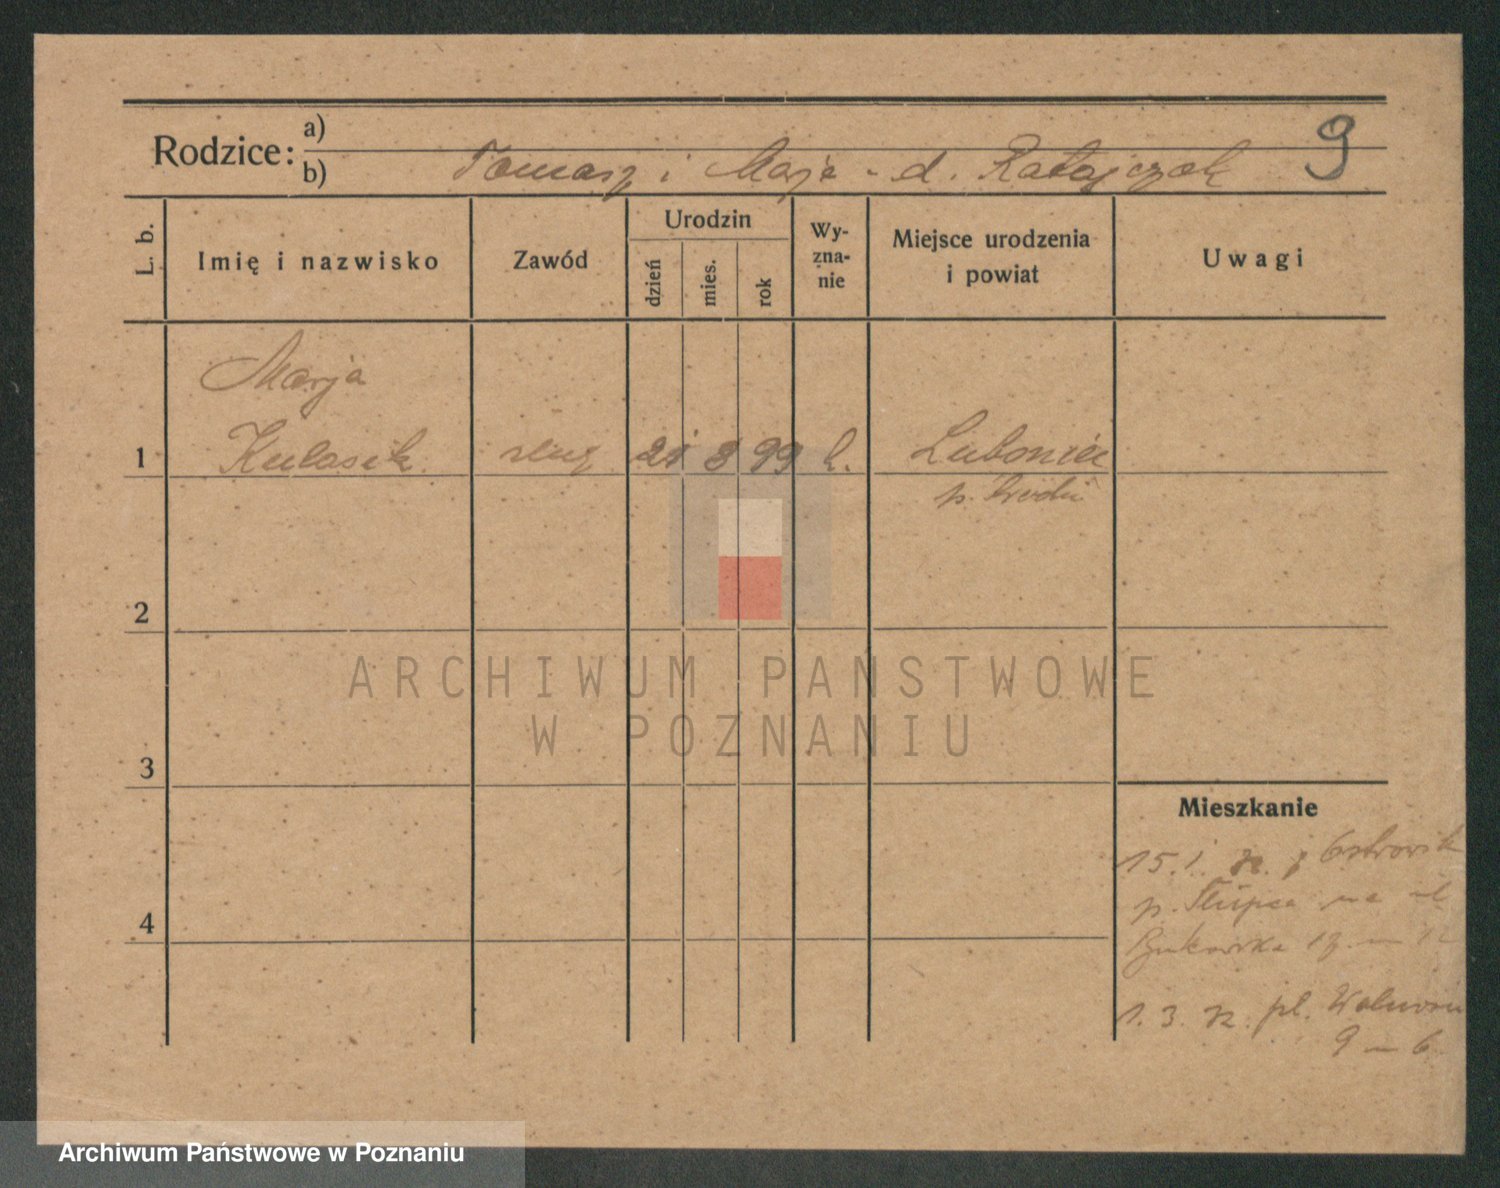 Rodzice: a)
b) Tomasz i Marja - d. Ratajczak
9
L. b.
Imię i nazwisko
Zawód
Urodzin
dzień
mies.
rok
Wy-
zna-
nie
Miejsce urodzenia
i powiat
Uwagi
Marja
1 Kulasik służ 21 8 99 k.
p. Środa
2
3
4
Mieszkanie
15. 1.
p. Słupca na ul.
Bukowska
1. 3. pl. Wolności
9 – 6
ARCHIWUM PAŃSTWOWE
W POZNANIU
Archiwum Państwowe w Poznaniu